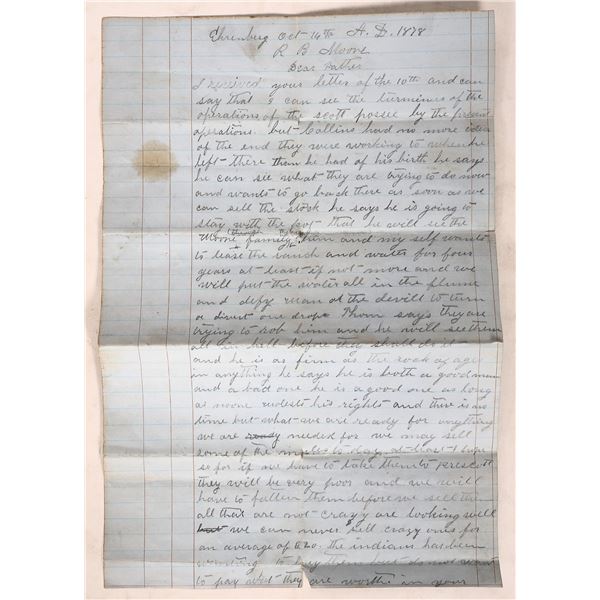 Ehrenberg Oct 14th A. D. 1878
R B Moore
Dear Father
I received your letter of the 10th and can
say that I can see the turmines of the
operations of the scott posse by the present
operations but Collins had no more idea
of the end they were working to when he
left there than he had of his birth he says
he can see what they are trying to do now
and wants to go back there as soon as we
can sell the stock he says he is going to
stay with the that he will see the
Moore family through him and my self wants
to lease the ranch and water for four
years at least if not more and we
will put the water all in the flume
and defy man or the devill to turn
or divert one drop Thom says they are
trying to rob him and he will see them
all in hell before they should do it
and he is as firm as the rock of ages
in anything he says he is both a good man
and a bad one he is a good one as long
as noone molests his rights and thir is no
time but what we are ready for anything
we are ready needed for we may sell
some of the mules to day at least I hope
so for if we have to take them to prescott
they will be very poor and we will
have to fatten them before we sell them
all that are not crazy are looking well
but we can never sell crazy ones for
an average of $20. the indians has been
wanting to buy them but do not want
to pay what they are worthe in your